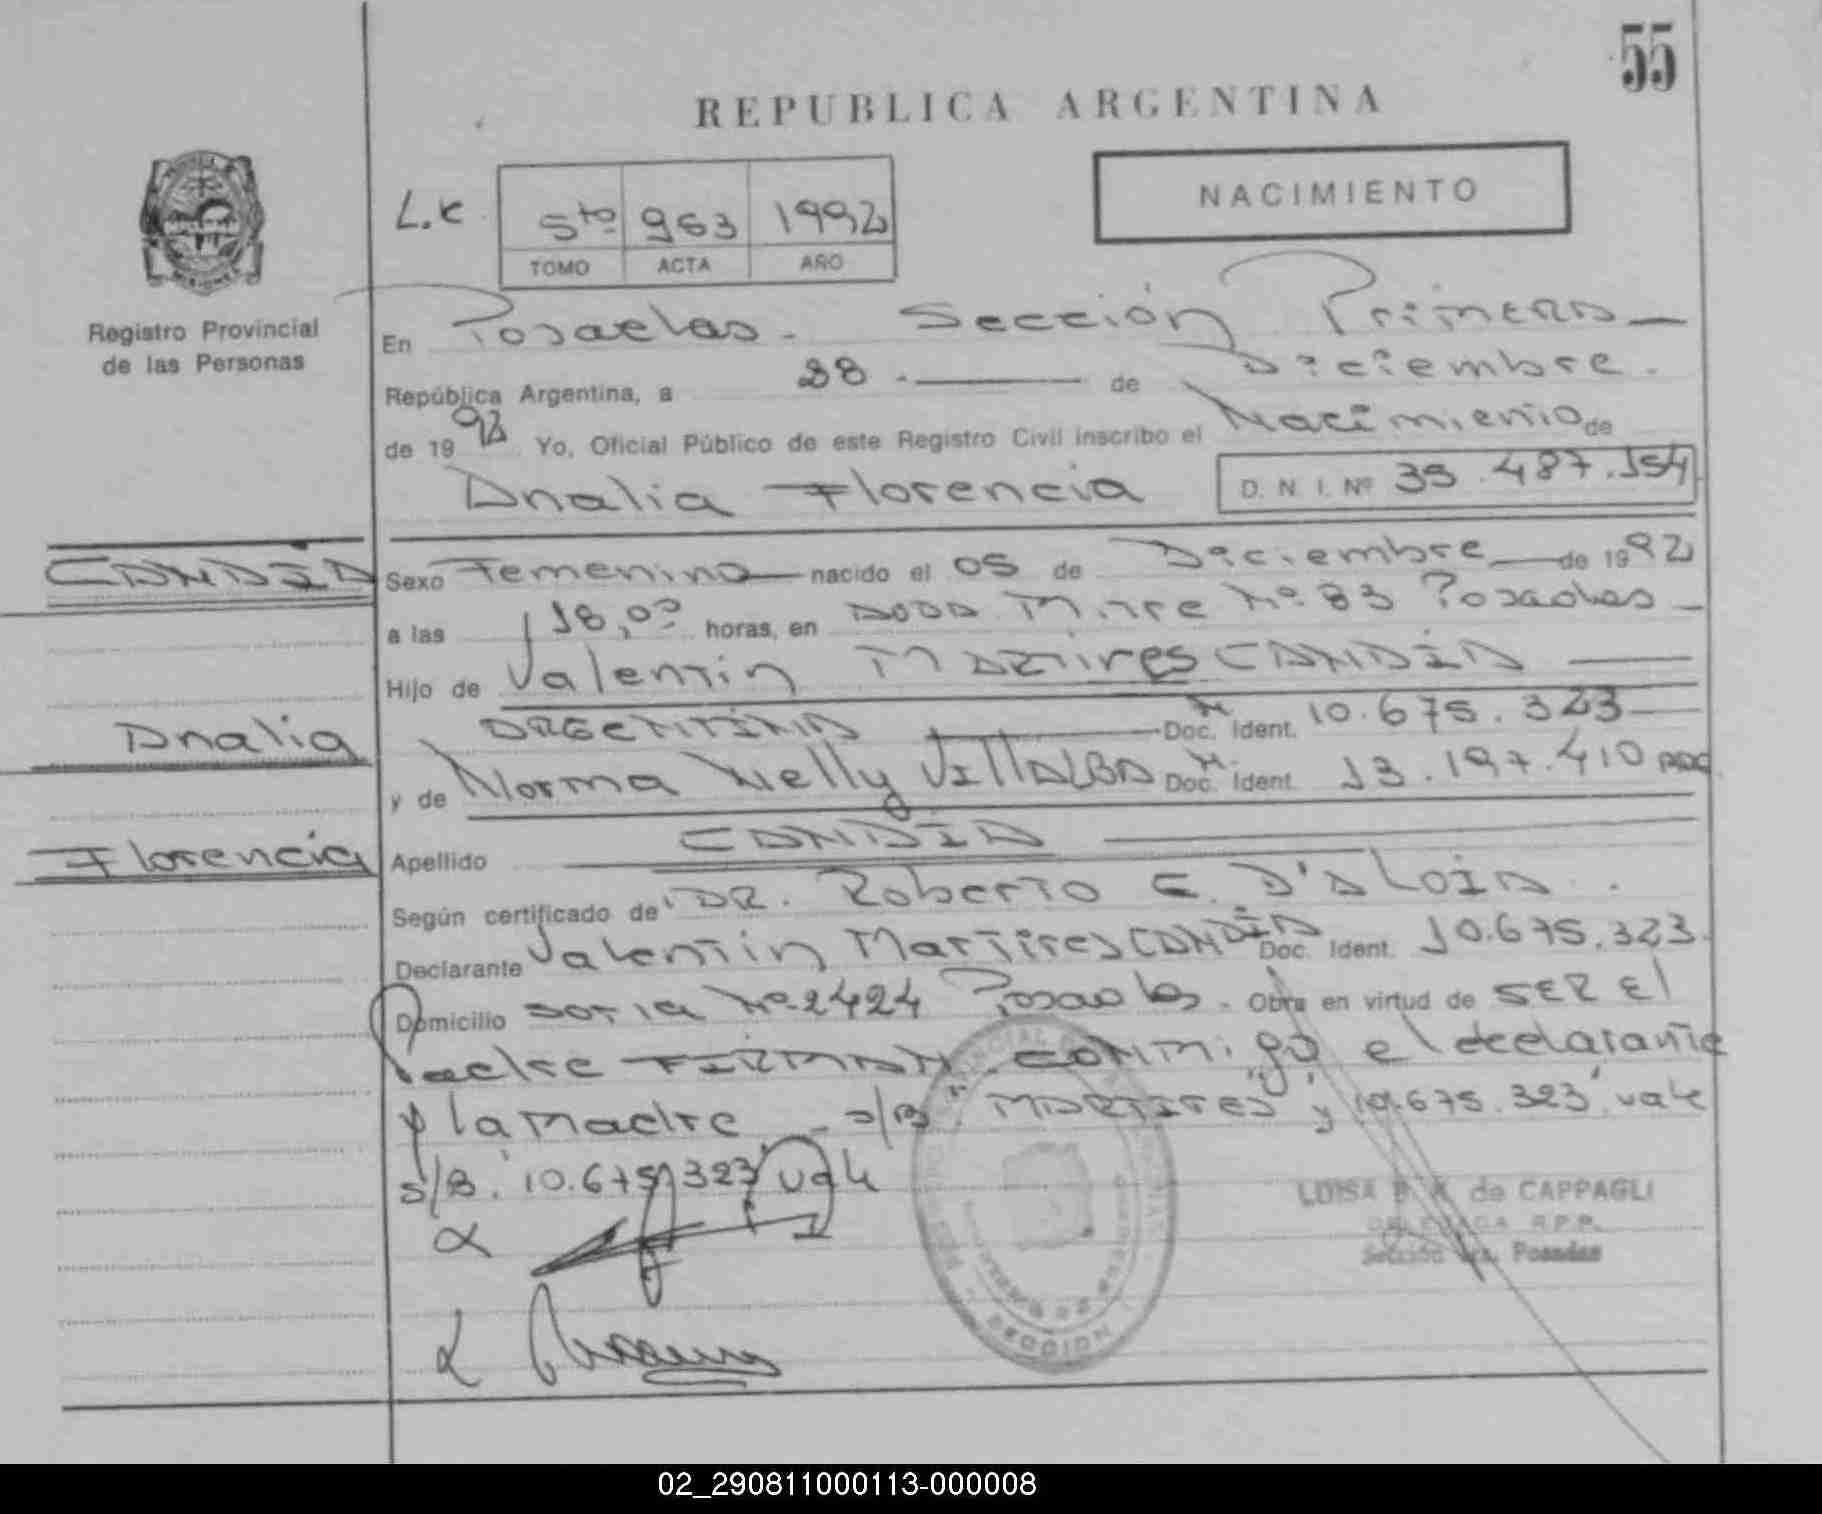 55
REPUBLICA ARGENTINA
NACIMIENTO
L.C 5to 963 1992
TOMO ACTA AÑO
Registro Provincial
de las Personas
En Posadas - Sección Primera
República Argentina, a 28 - de Diciembre -
de 1992 Yo, Oficial Público de este Registro Civil inscribo el Nacimiento de
Analia Florencia D. N. I. Nº 35.487.154
CANDIA
Analia
Florencia
Sexo Femenino nacido el 05 de Diciembre de 1992
a las 18,00 horas, en Mitre Nº 83 Posadas
Hijo de Valentin Martires CANDIA
ARGENTINA Doc. Ident. 10.675.323
y de Norma Nelly VILLALBA Doc. Ident. 13.197.410
Apellido CANDIA
Según certificado de DR. Roberto E. D'ALOIA.
Declarante Valentin Martires CANDIA Doc. Ident. 10.675.323.
Domicilio Soria Nº 2424 Posadas. Obra en virtud de SER El
Padre FIRMAN conmigo el declarante
y la Madre - S/B "MARTIRES" y 10.675.323 vale
S/B. 10.675.323 vale
LUISA de CAPPAGLI
DELEGADA R.P.P.
Sección 1ra. Posadas
SECCION
02_290811000113-000008